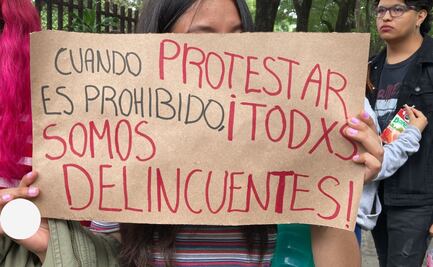 CUANDO PROTESTAR
ES PROHIBIDO, ¡TODXS
SOMOS
DELINCUENTES!